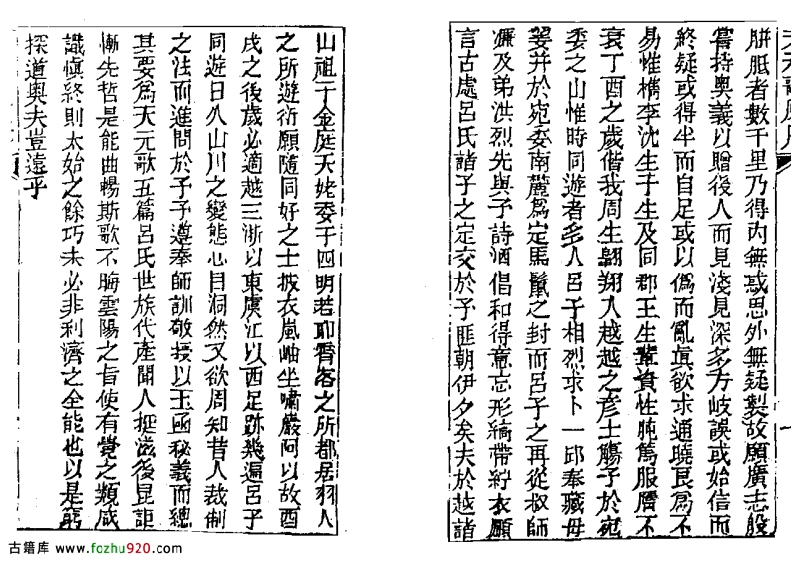 胼胝者數千里乃得內無惑思外無疑製故願廣志殷
嘗持奧義以贈後人而見淺見深多方岐誤或始信而
終疑或得半而自足或以僞而亂眞欲求通曉良爲不
易惟檇李沈生子生及同郡王生輩資性肫篤服膺不
衰丁酉之歲偕我周生翺翔入越越之彥士觴予於宛
委之山惟時同遊者多人呂子相烈求卜一邱奉藏母
妾并於宛委南麓爲定馬鬣之封而呂子之再從叔師
濂及弟洪烈先與予詩酒倡和得意忘形縞帶紵衣願
言古處呂氏諸子之定交於予匪朝伊夕矣夫於越諸
山祖于金庭天姥委于四明若耶霄客之所都居羽人
之所遊衍願隨同好之士披衣嵐岫坐嘯巖阿以故酉
戌之後歲必適越三浙以東虞江以西足跡幾遍呂子
同遊日久山川之變態心目洞然又欲周知昔人裁制
之法而進問於予予遵奉師訓敬授以玉函秘義而總
其要爲天元歌五篇呂氏世族代產聞人挺滋後昆詎
慚先哲是能曲暢斯歌不晦雲陽之旨使有覺之類咸
識愼終則太始之餘巧未必非利濟之全能也以是窮
探道奧夫豈遠乎
古籍库 www.fozhu920.com